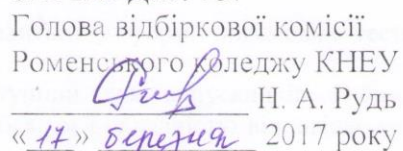 Голова відбіркової комісії
Роменського коледжу КНЕУ
Н. А. Рудь
«17» березня 2017 року